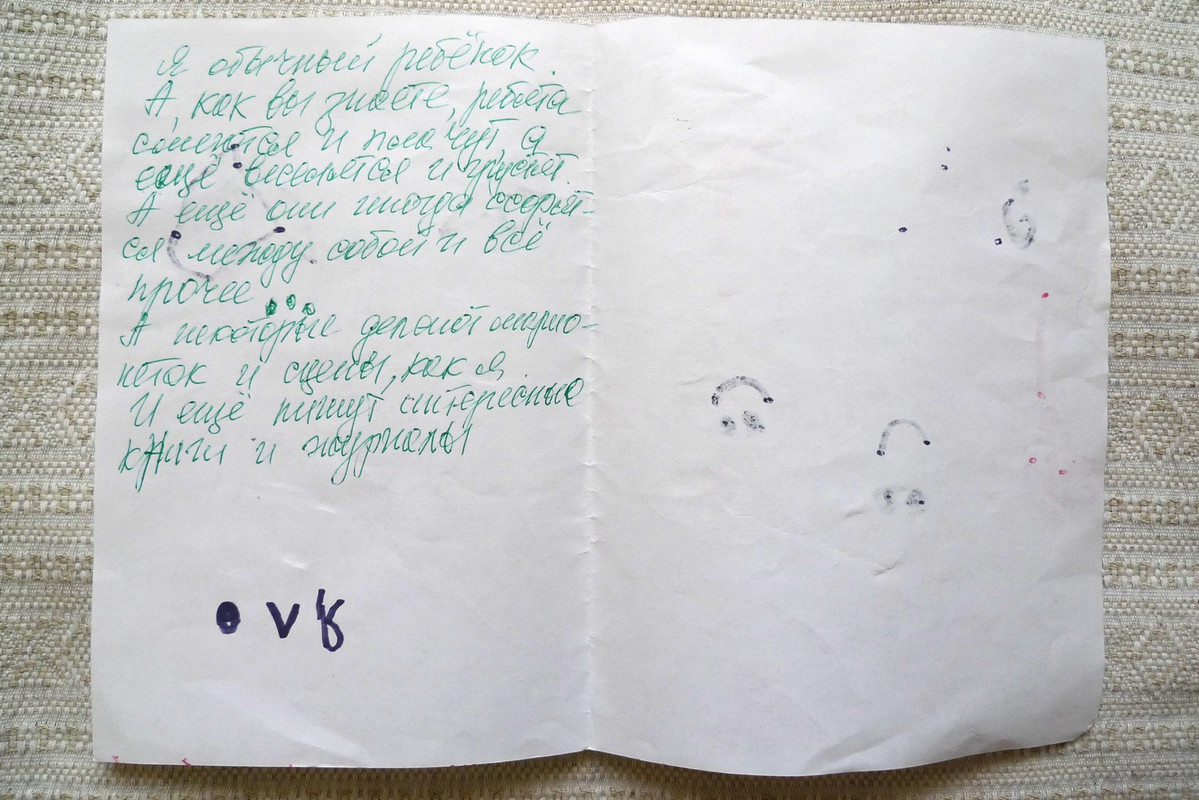 Я обычный ребёнок.
А, как вы знаете, ребята
смеются и плачут, а
ещё веселятся и грустят.
А ещё они иногда ссорят-
ся между собой и всё
прочее...
А некоторые делают марио-
неток и сцены, как я.
И ещё пишут интересные
книги и журналы